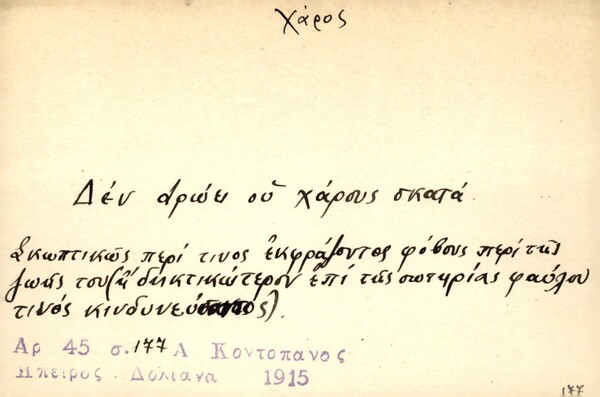 Χάρος
Δέν τρώει οὑ χάρους σκατά.
Σκωπτικῶς περί τινος ἐκφράζοντος φόβους περί τῆς
ζωῆς του (ἤ δηκτικώτερον ἐπί τῆς σωτηρίας φαύλου
τινός κινδυνεύσαντος).
Αρ 45 σ. 177 Α Κοντοπανος
Ηπειρος. Δολιανα 1915
177